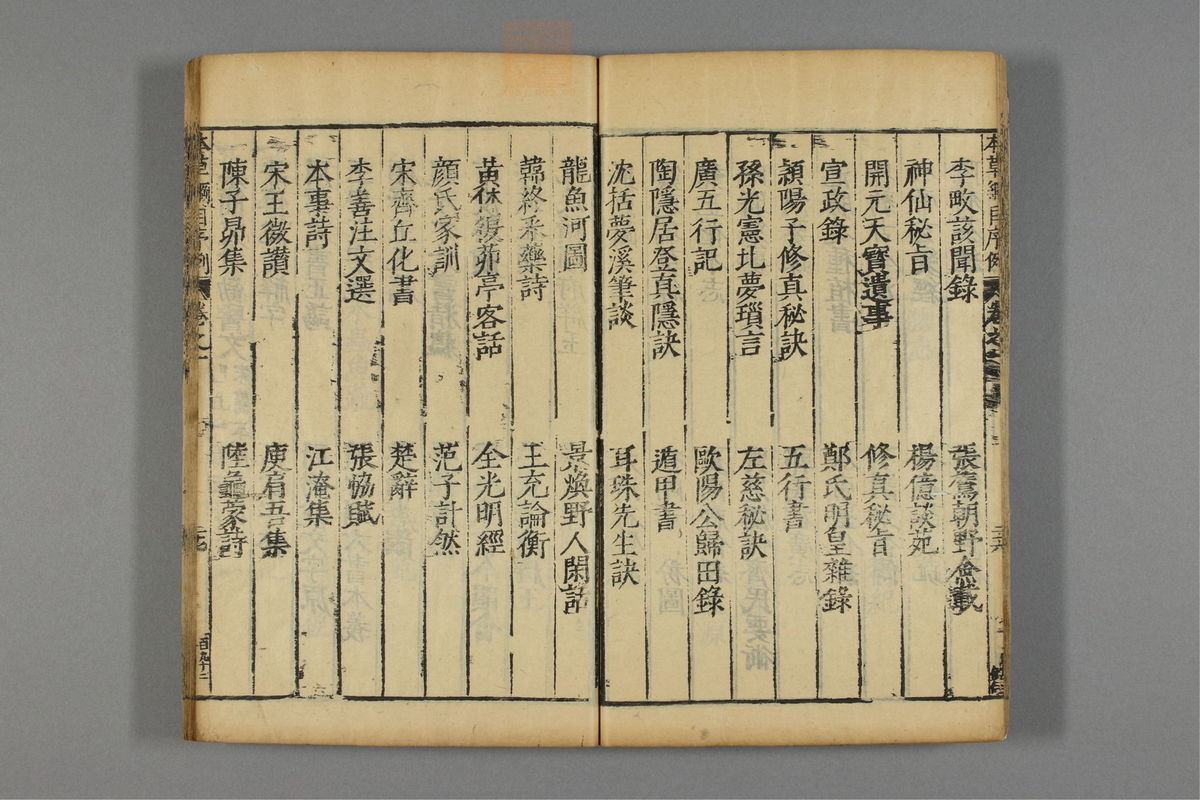 李畋該聞錄　張鷟朝野僉載
神仙秘旨　楊億談苑
開元天寶遺事　修真秘旨
宣政錄　鄭氏明皇雜錄
潁陽子修真秘訣　五行書
孫光憲北夢瑣言　左慈秘訣
廣五行記　歐陽公歸田錄
陶隱居登真隱訣　遁甲書
沈括夢溪筆談　耳珠先生訣
龍魚河圖　景煥野人閑話
韓終采藥詩　王充論衡
黃休復茆亭客話　金光明經
顏氏家訓　范子計然
宋齊丘化書　楚辭
李善注文選　張協賦
本事詩　江淹集
宋王微讚　庾肩吾集
陳子昂集　陸龜蒙詩
本草綱目序例　卷之一